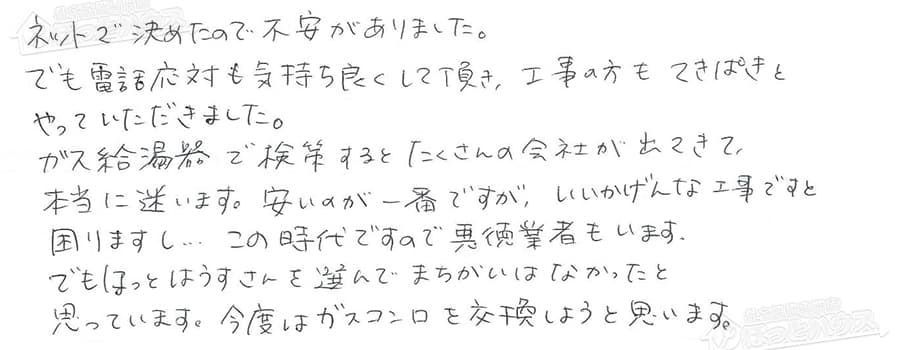 ネットで決めたので不安がありました。
でも電話応対も気持ち良くして頂き、工事の方もてきぱきと
やっていただきました。
ガス給湯器で検策するとたくさんの会社が出てきて、
本当に迷います。安いのが一番ですが、いいかげんな工事ですと
困りますし… この時代ですので悪徳業者もいます.
でもほっとはうすさんを選んでまちがいはなかったと
思っています。今度はガスコンロを交換しようと思います。